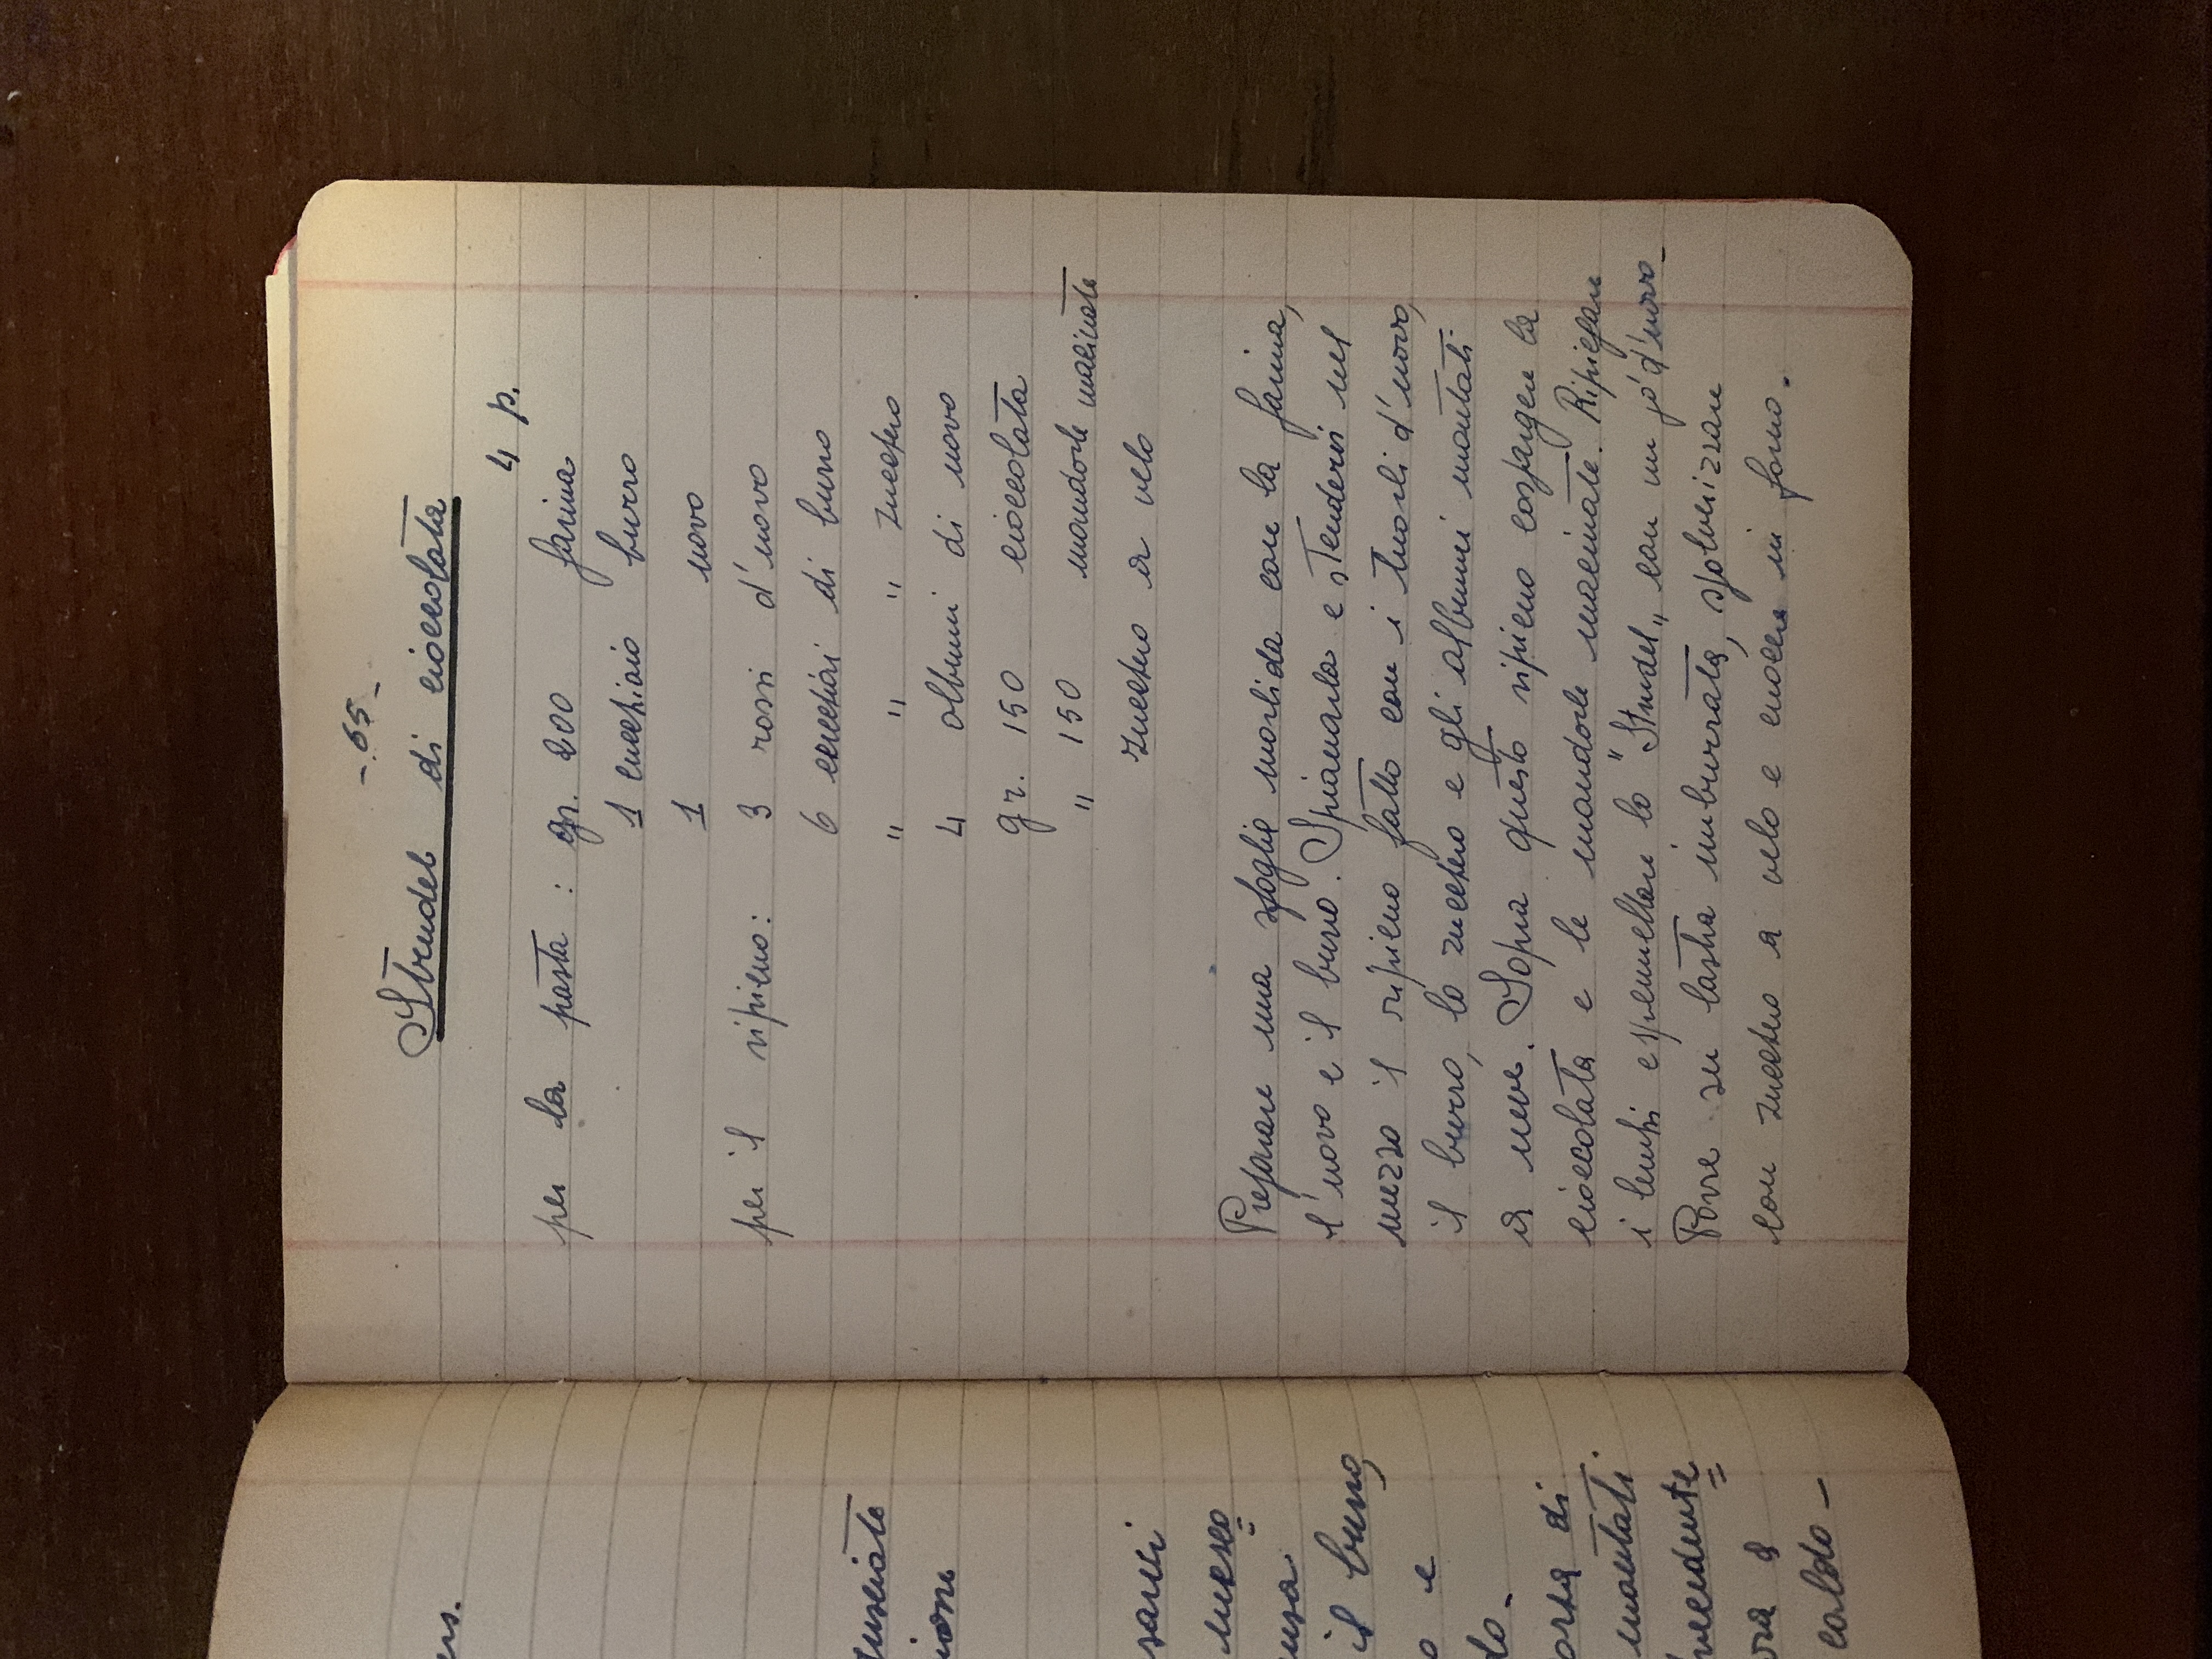 ers.
usciate
sarci
mesco
il burro,
o e
do-
orza di
montati
recedente
ora a
caldo-
- 65 -
Strudel di cioccolata
4 p.
per la pasta : gr. 200 farina
1 cucchiaio burro
1 uovo
per il ripieno: 3 rossi d'uovo
6 cucchiai di burro
" " " zucchero
4 albumi di uovo
gr. 150 cioccolata
" 150 mandorle macinate
zucchero a velo
Preparare una sfoglia morbida con la farina,
l'uovo e il burro. Spianarla e stendervi nel
mezzo il ripieno fatto con i tuorli d'uovo,
il burro, lo zucchero e gli albumi montati
a neve. Sopra questo ripieno cospargere la
cioccolata e le mandorle macinate. Ripiegare
i lembi e spennellare lo "Strudel„ con un pó d'uovo-
Porre su lastra imburrata, spolverizzare
con zucchero a velo e cuocere in forno.